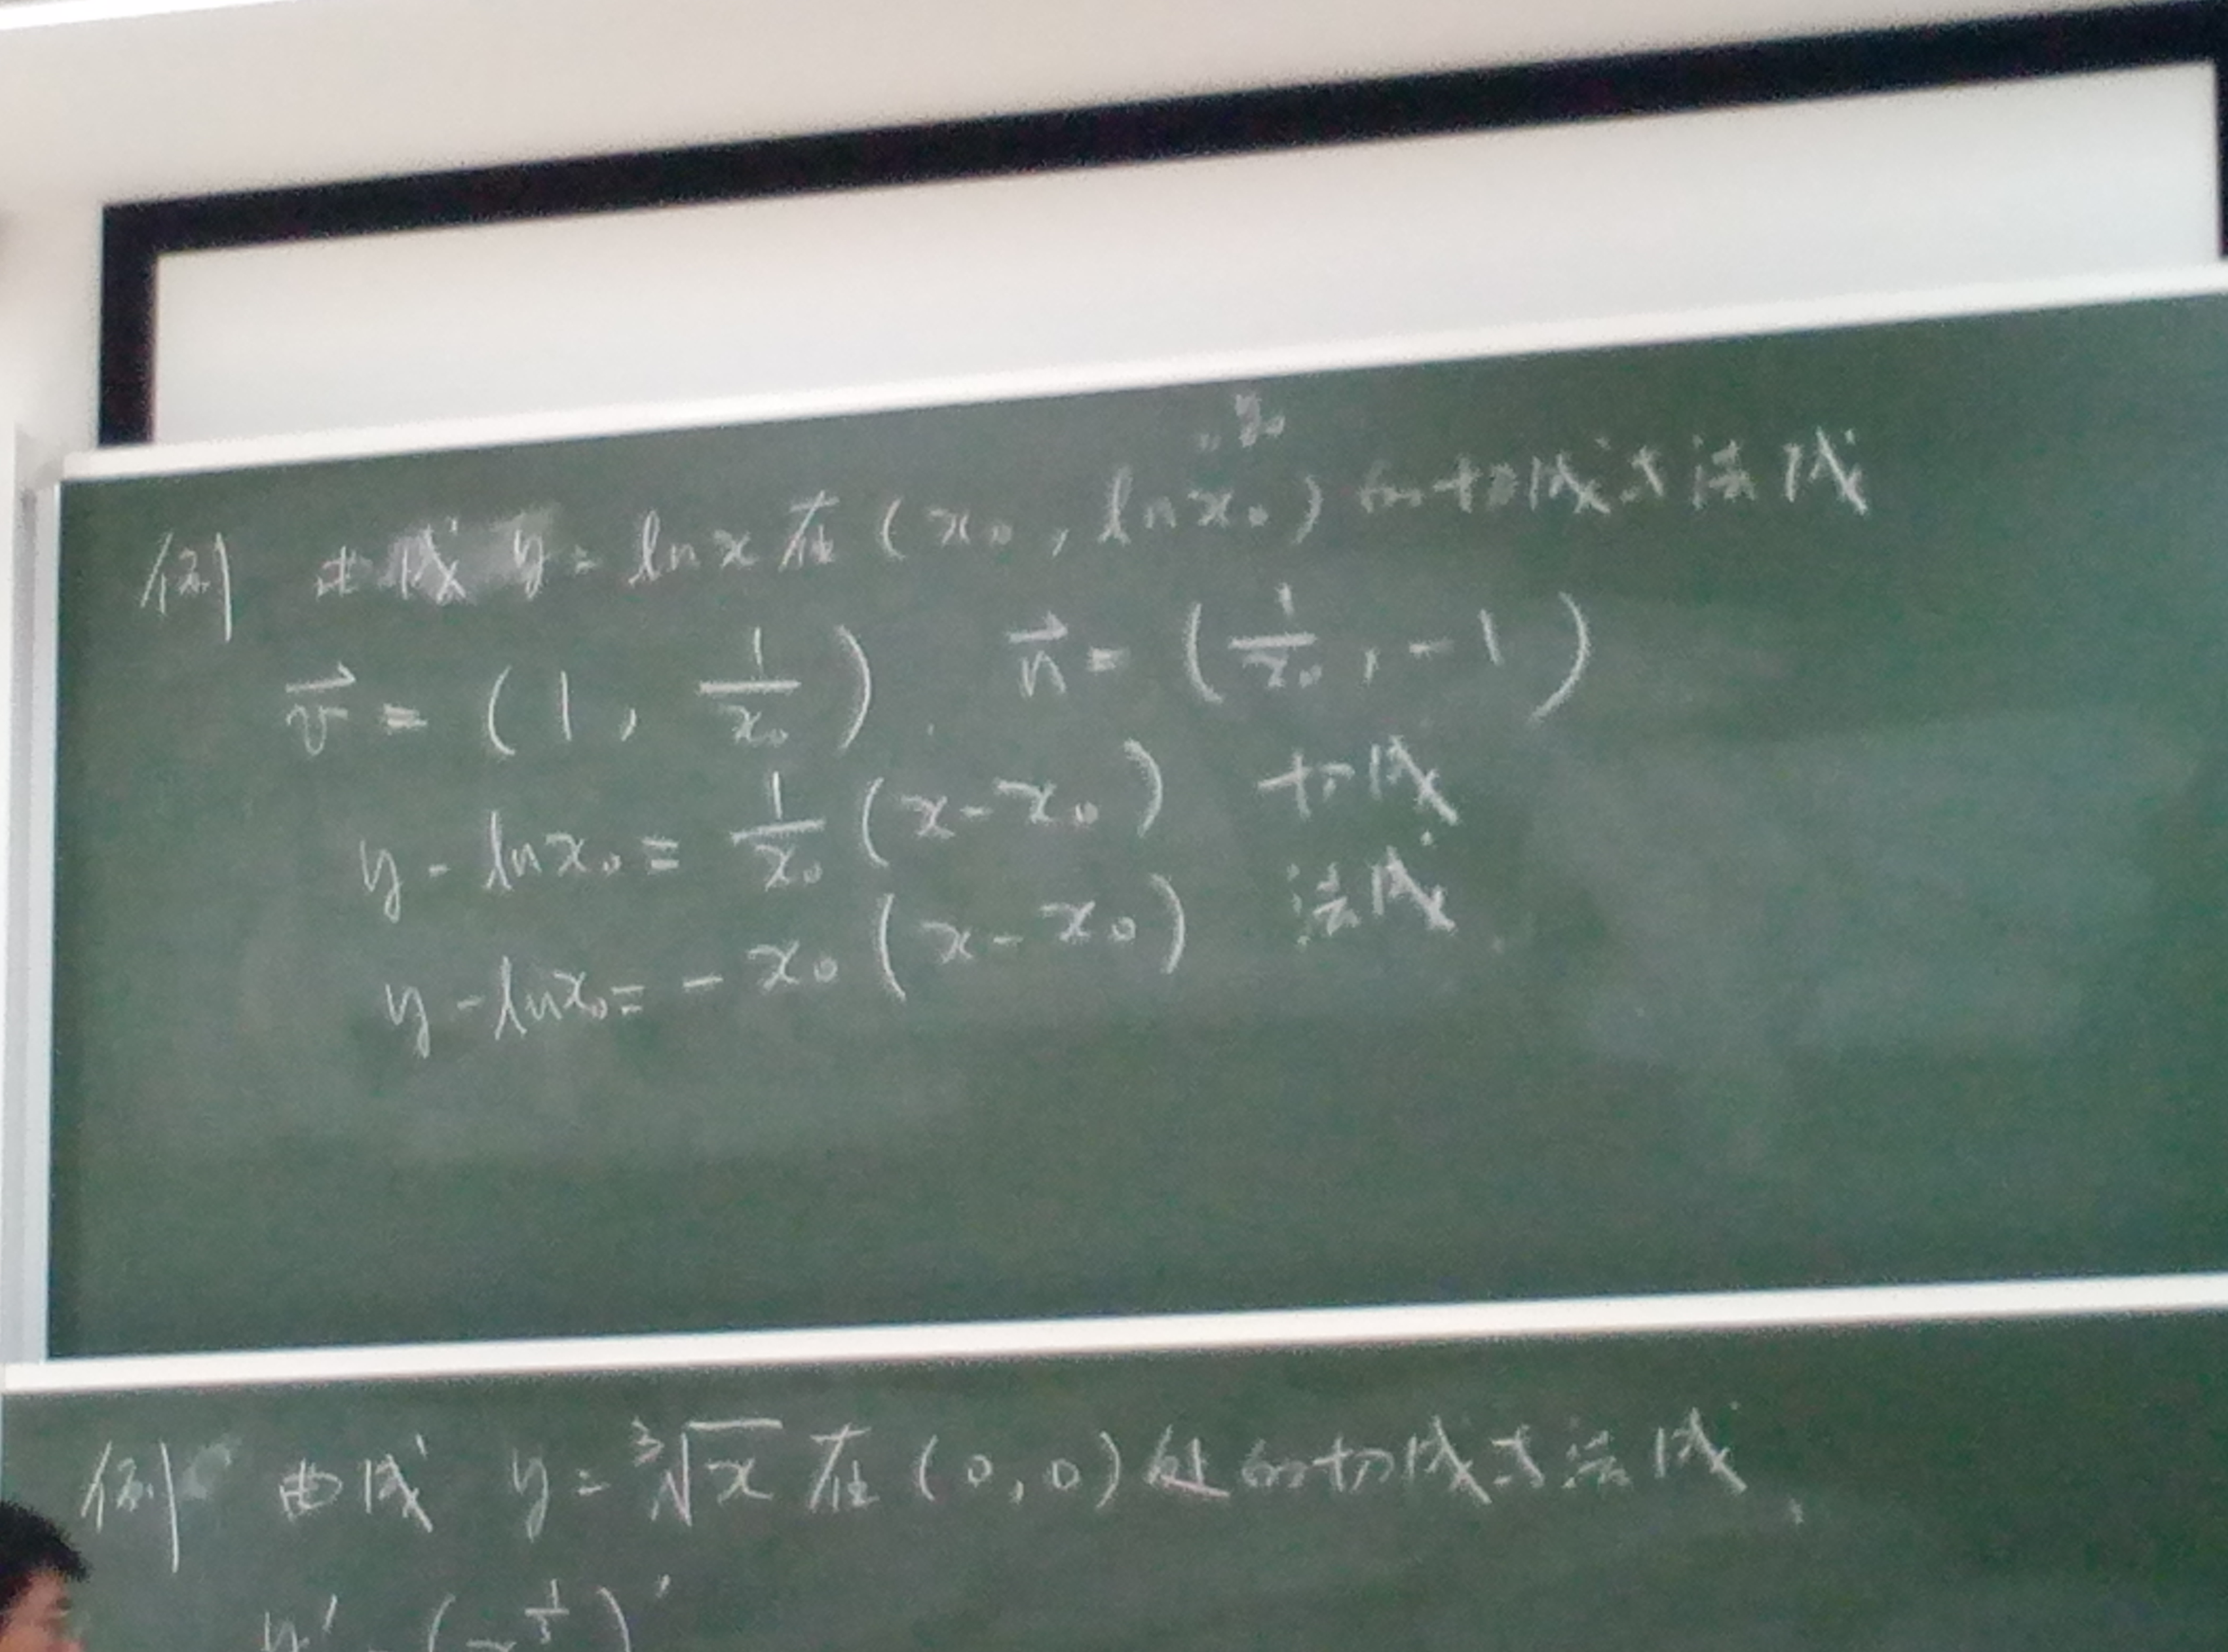 "y₀
例 曲线 y = ln x 在 (x₀, ln x₀) 的切线与法线
v⃗ = (1, 1/x₀). n⃗ = (1/x₀, -1)
y - ln x₀ = 1/x₀ (x - x₀) 切线
y - ln x₀ = - x₀ (x - x₀) 法线.
例 曲线 y = ∛x 在 (0,0) 处的切线与法线.
y' = (x^(1/3))'